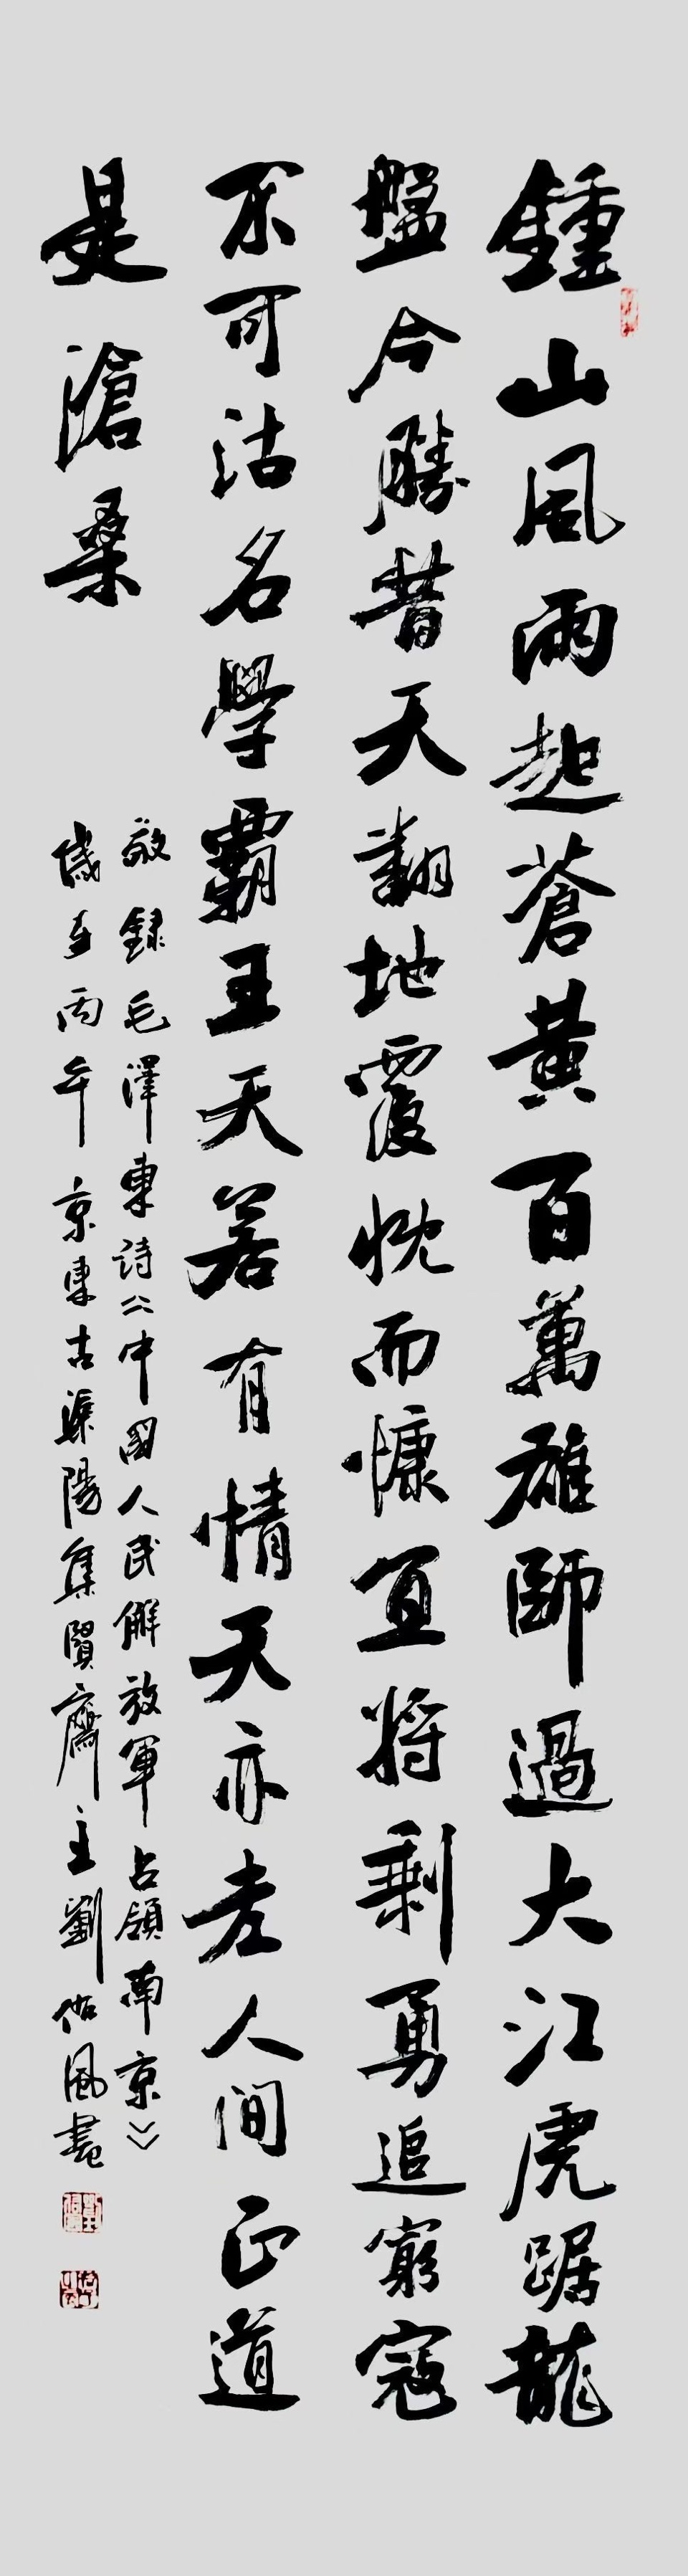 鍾山風雨起蒼黃百萬雄師過大江虎踞龍
盤今勝昔天翻地覆慨而慷宜將剩勇追窮寇
不可沽名學霸王天若有情天亦老人間正道
是滄桑
敬録毛澤東詩《中國人民解放軍占領南京》
歲在丙午京東古渠陽集賢齋主劉佑風書